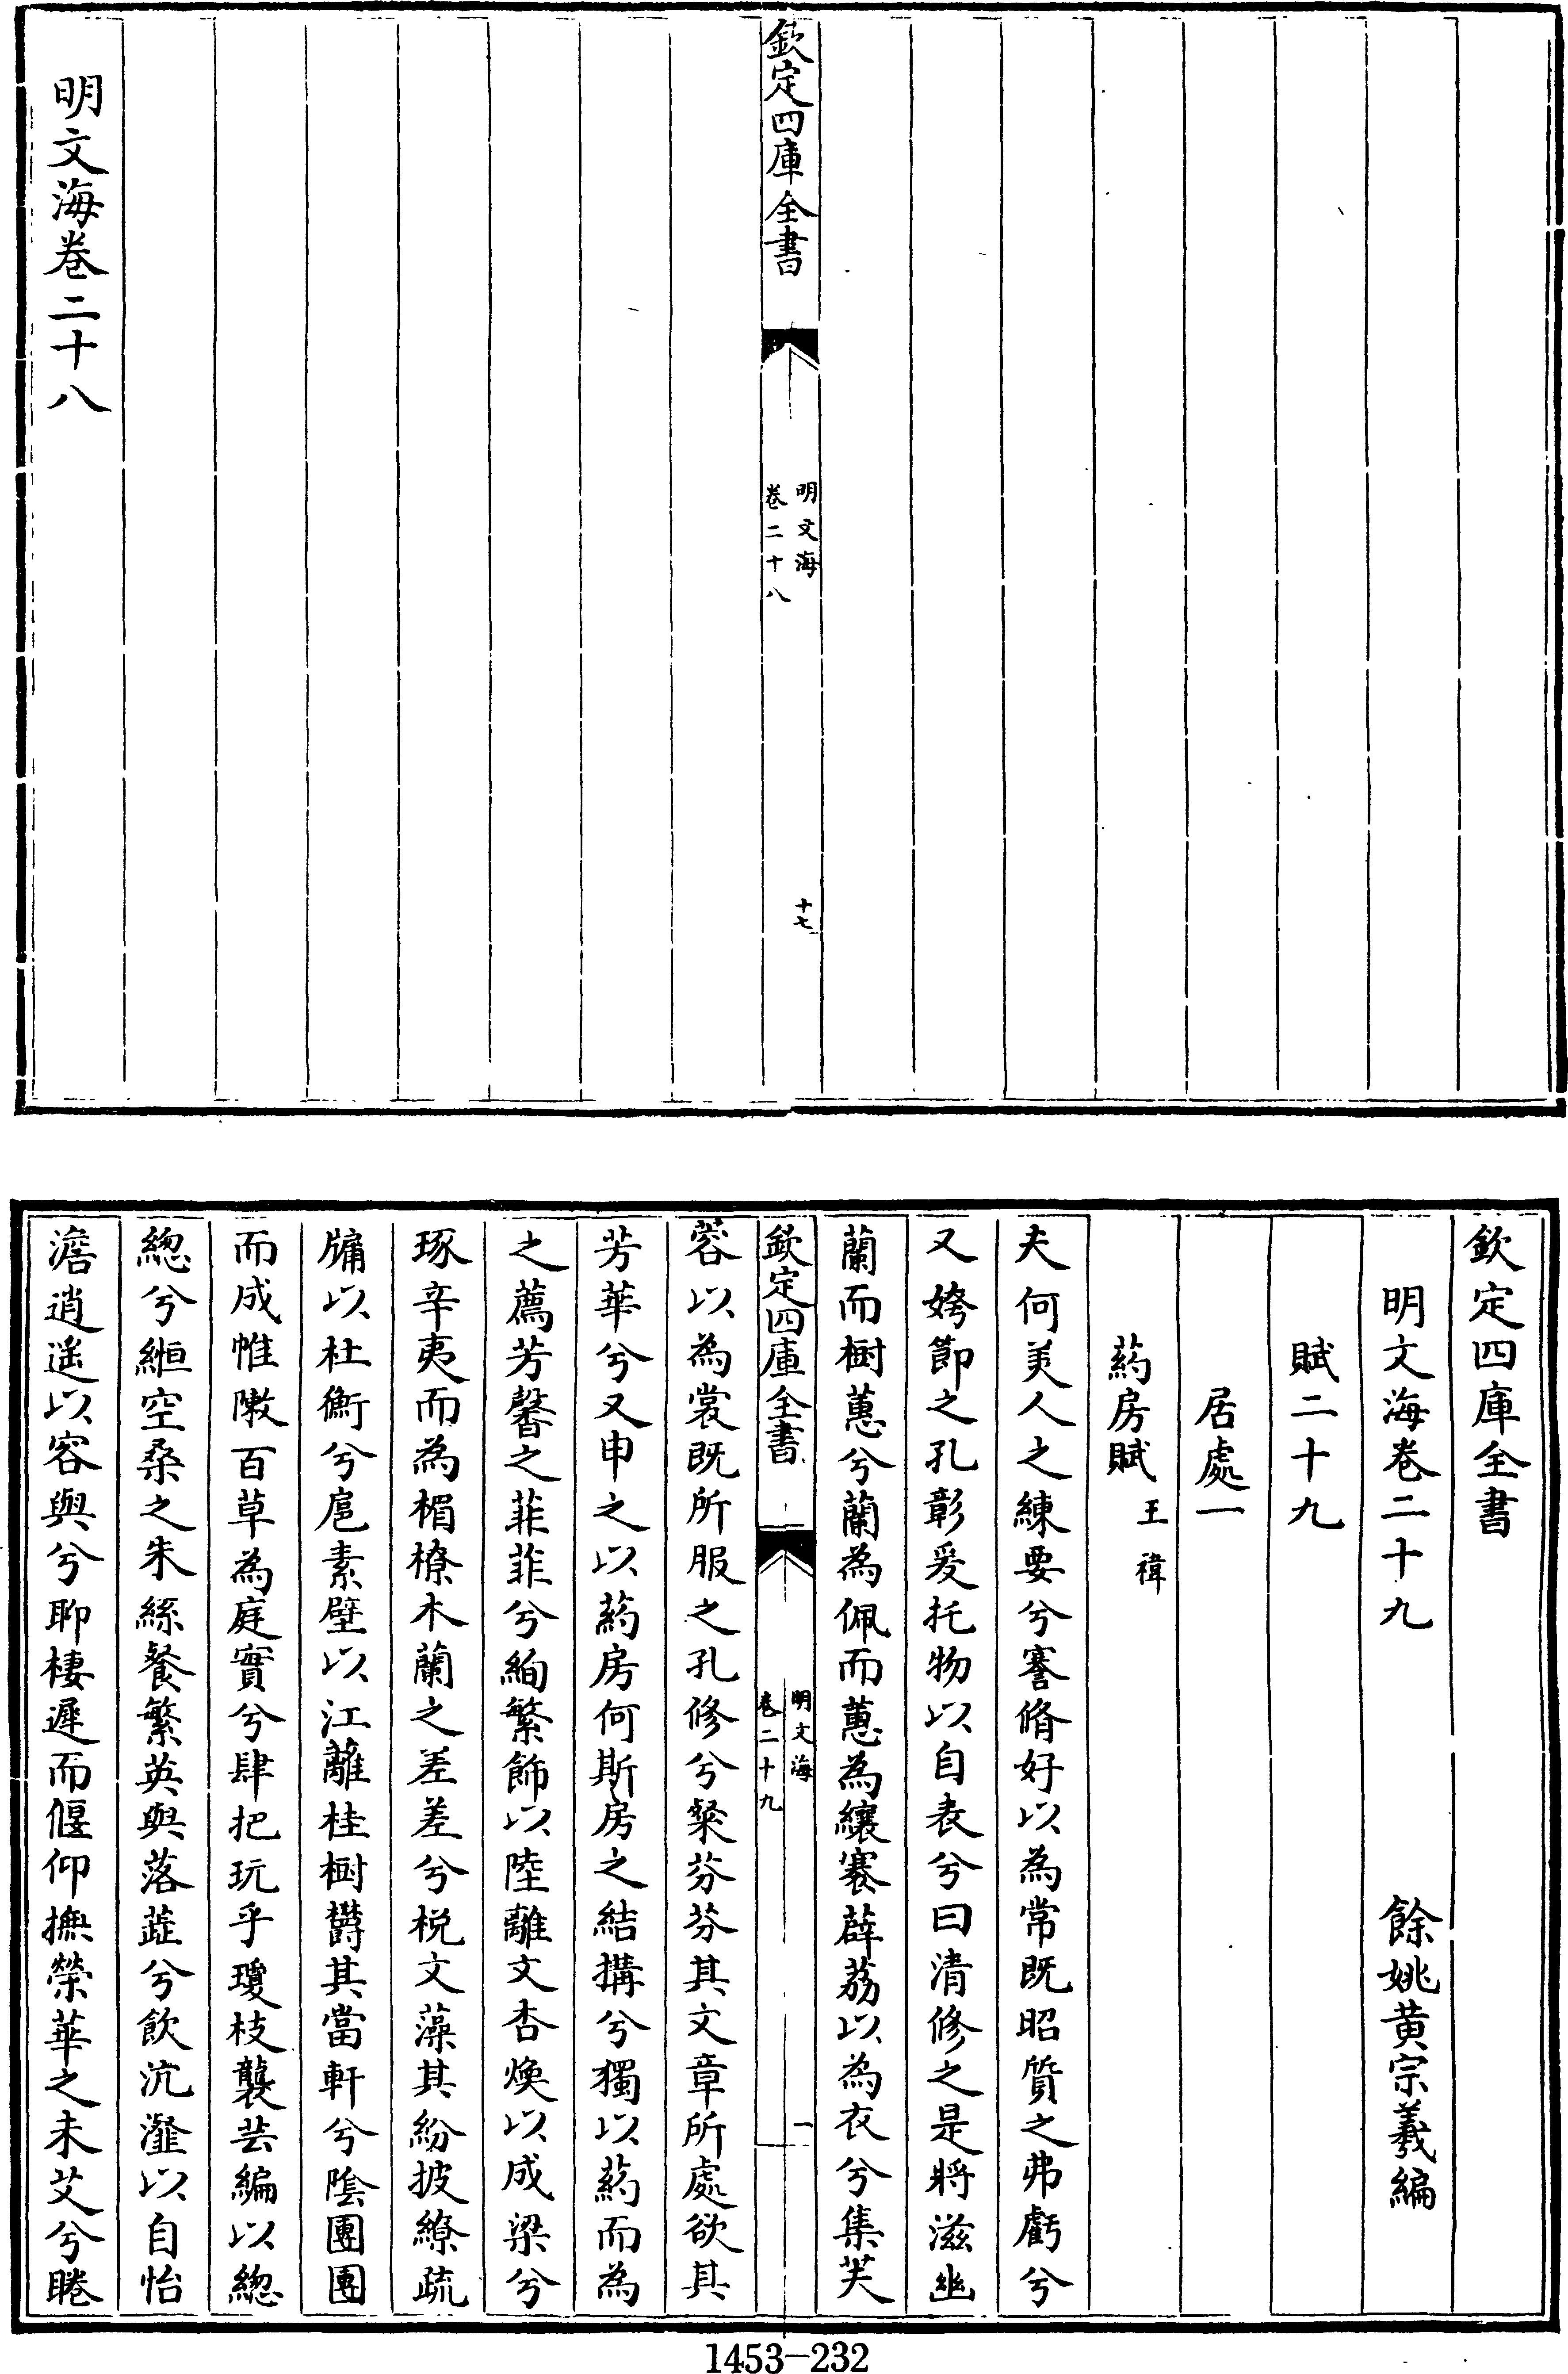 欽定四庫全書
明文海
卷二十八
十七
明文海卷二十八
欽定四庫全書
明文海卷二十九
餘姚黄宗羲編
賦二十九
居處一
葯房賦
王禕
夫何美人之練要兮謇脩好以為常既昭質之弗虧兮
又姱節之孔彰爰托物以自表兮曰清修之是將滋幽
蘭而樹蕙兮蘭為佩而蕙為纕褰薜荔以為衣兮集芙
欽定四庫全書
明文海
卷二十九
一
蓉以為裳既所服之孔修兮粲芬芬其文章所處欲其
芳華兮又申之以葯房何斯房之結搆兮獨以葯而為
之薦芳馨之菲菲兮絢繁飾以陸離文杏煥以成梁兮
琢辛夷而為楣橑木蘭之差差兮棁文藻其紛披繚疏
牖以杜衡兮扈素壁以江蘺桂樹欝其當軒兮陰團團
而成帷敶百草為庭實兮肆把玩乎瓊枝襲芸編以緫
緫兮縆空桑之朱絲餐繁英與落蕋兮飲沆瀣以自怡
澹逍遥以容與兮聊棲遲而偃仰撫榮華之未艾兮睠
1453-232